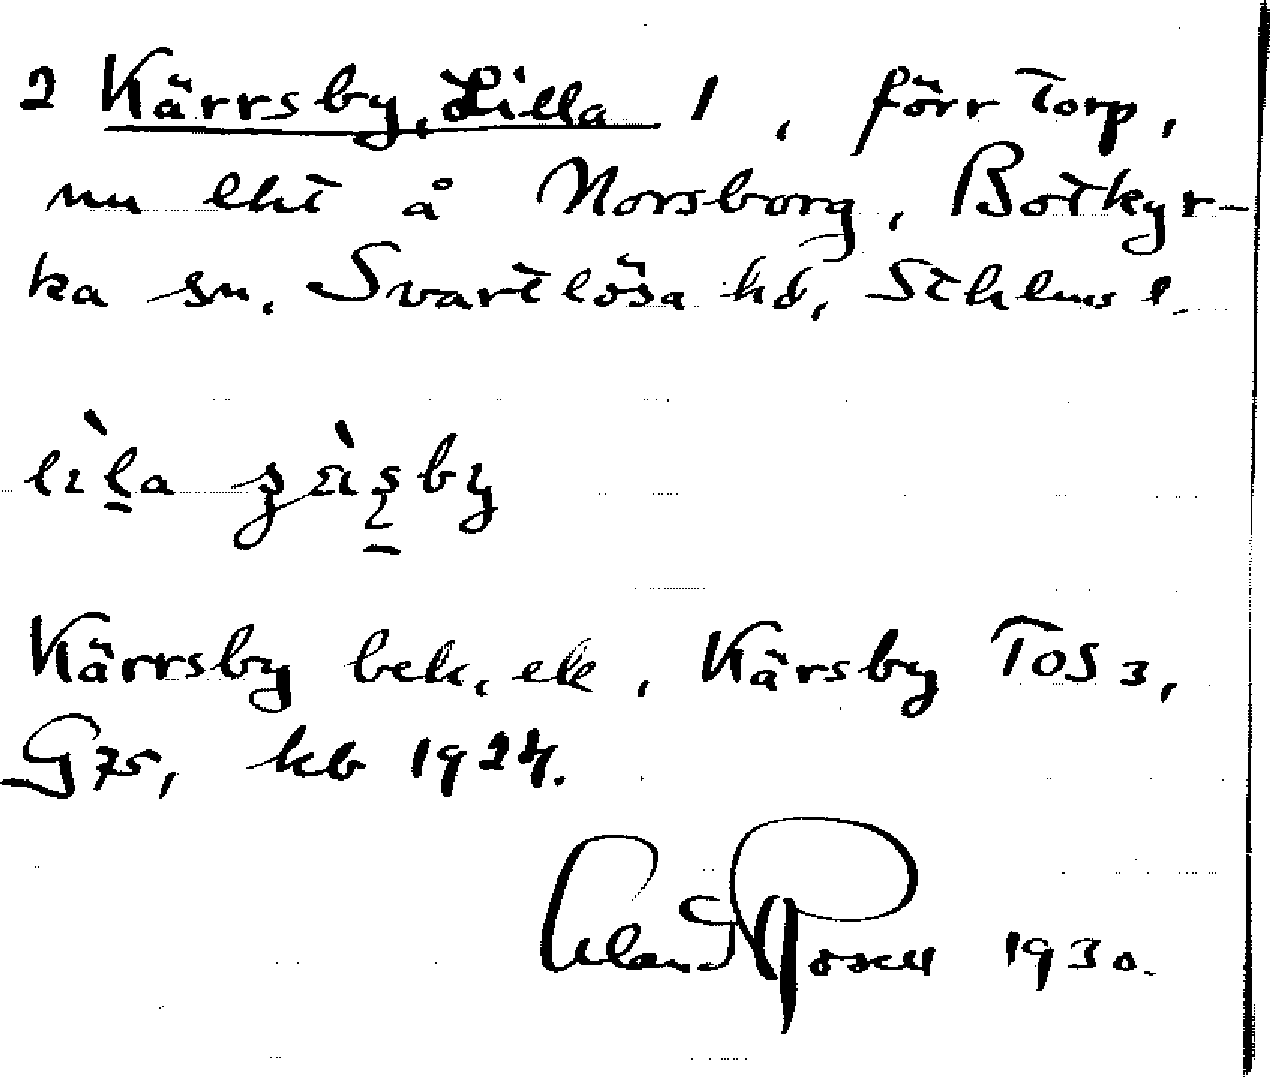 2 Kärrsby, Lilla 1, förr torp,
nu lht å Norsborg, Botkyr-
ka sn. Svartlösa hd, Sthlms l.
Kärrsby bek, ek, Kärsby TOS 3,
G75, kb 1924.
1930.